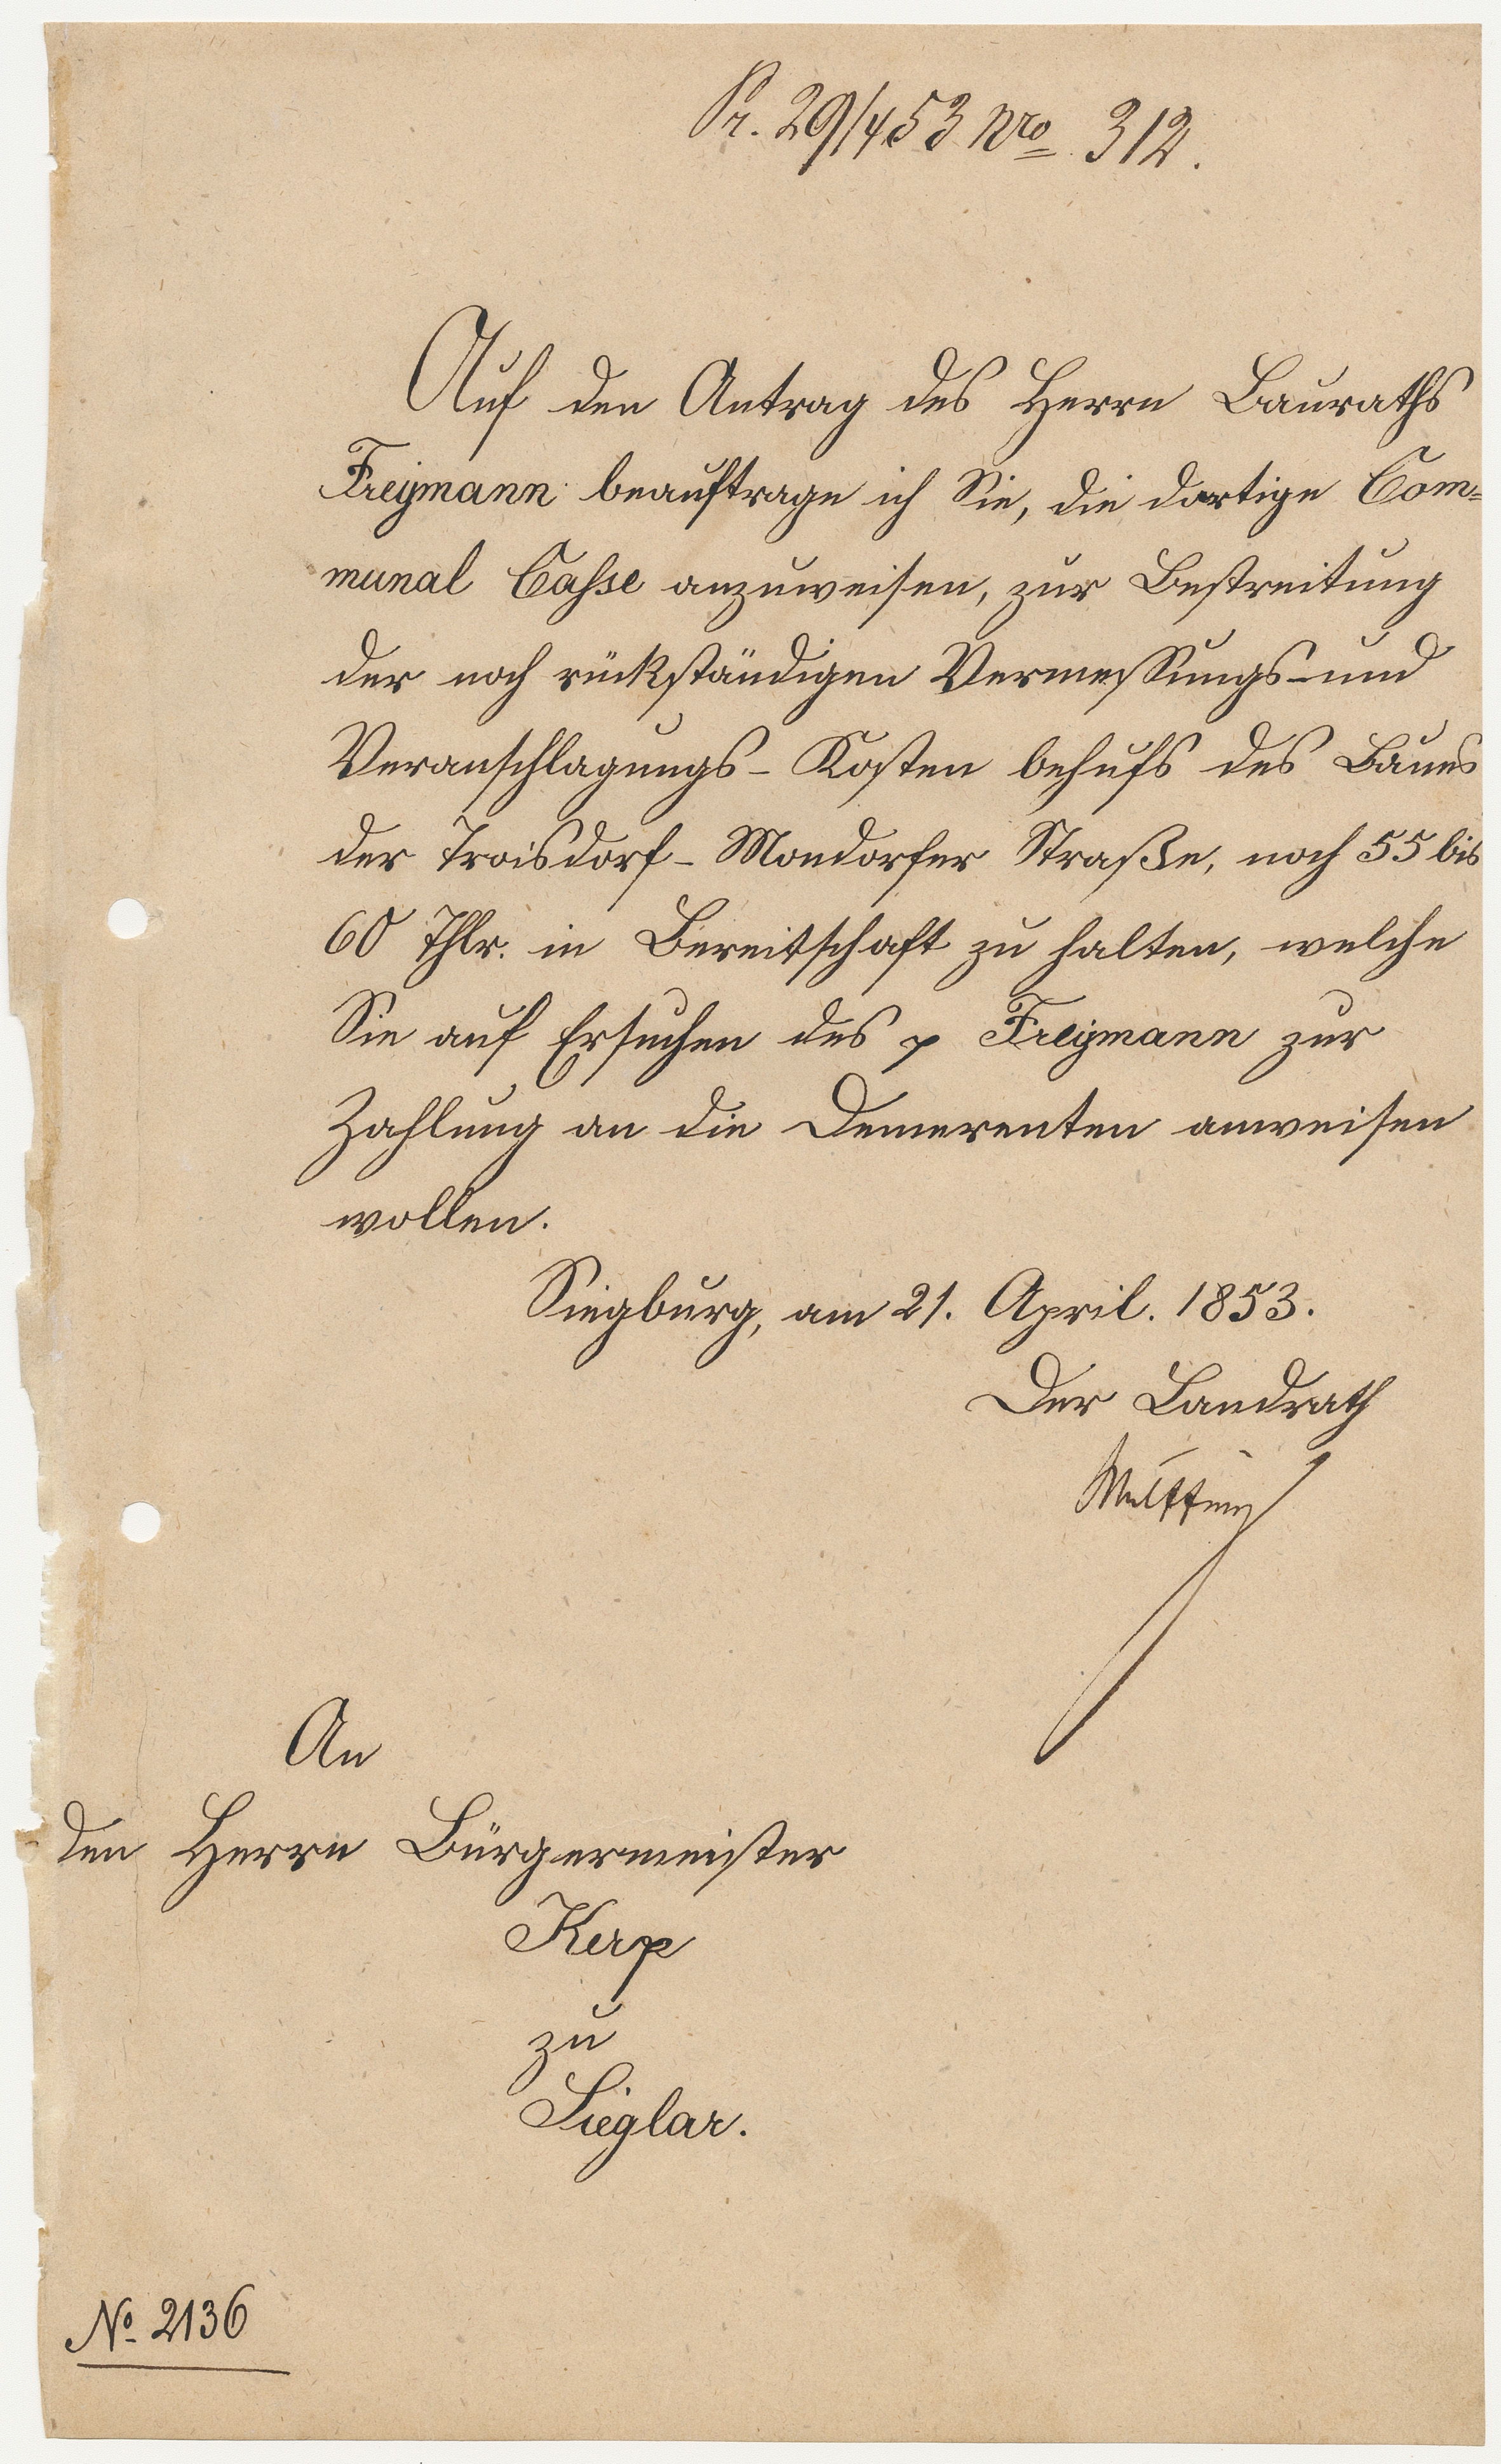 Pr. 29/4 53 Nro 312.
Auf den Antrag des Herrn Bauraths
Freymann beauftrage ich Sie, die dortige Com=
munal Casse anzuweisen, zur Bestreitung
der noch rückständigen Vermessungs- und
Veranschlagungs- Kosten behufs des Baues
der Troisdorf- Mondorfer Straße, noch 55 bis
60 Thlr. in Bereitschaft zu halten, welche
Sie auf Ersuchen des p Freymann zur
Zahlung an die Demerenten anweisen
wollen.
Siegburg, am 21. April. 1853.
Der Landrath
An
den Herrn Bürgermeister
Kerp
zu
Sieglar.
No. 2136